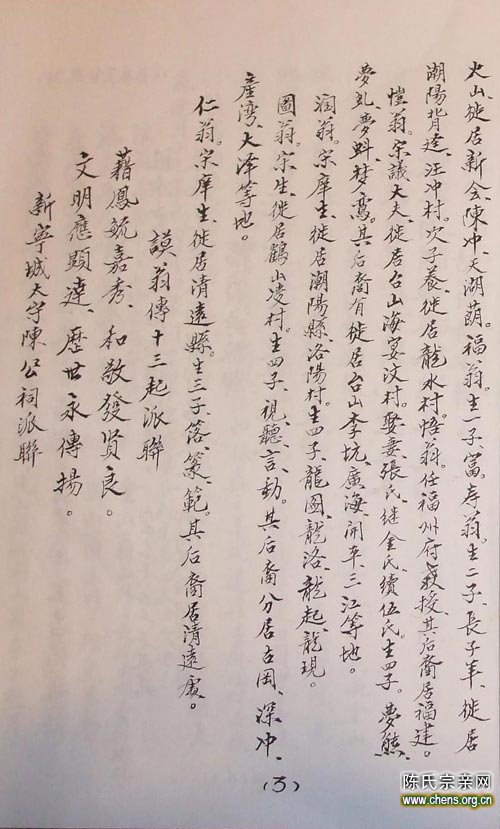 火山、徙居新会、陳冲、天湖萠。福翁。生一子、富。寿翁。生二子、長子丰、徙居
潮陽背逹、汪冲村。次子養、徙居龍水村。悟翁。任福州府教授、其后裔居福建。
愷翁。宗議大夫、徙居台山海宴汶村。娶妻、張氏、继金氏、續伍氏、生四子。夢熊、
夢虬、夢蚪、梦鸾。其后裔有徙居台山李坑、廣海、開平、三江等地。
润翁。宗庠生、徙居潮陽縣、洛陽村。生四子、龍圖、龍洛、龍起、龍現。
圖翁。宗生、徙居鶴山凌村。生四子、視、聽、言、動。其后裔分居古岡、深冲、
産湾、大泽等地。
仁翁。宗庠生、徙居清遠縣。生三子、落、箓、範。其后裔居清遠廣。
謨翁傳十三起派聯
藉鳳毓嘉秀、和敬發贤良。
文明應顯達、歷世永傳揚。
新寧城大宇陳公祠派聯
(3)
陈氏宗亲网
www.chens.org.cn